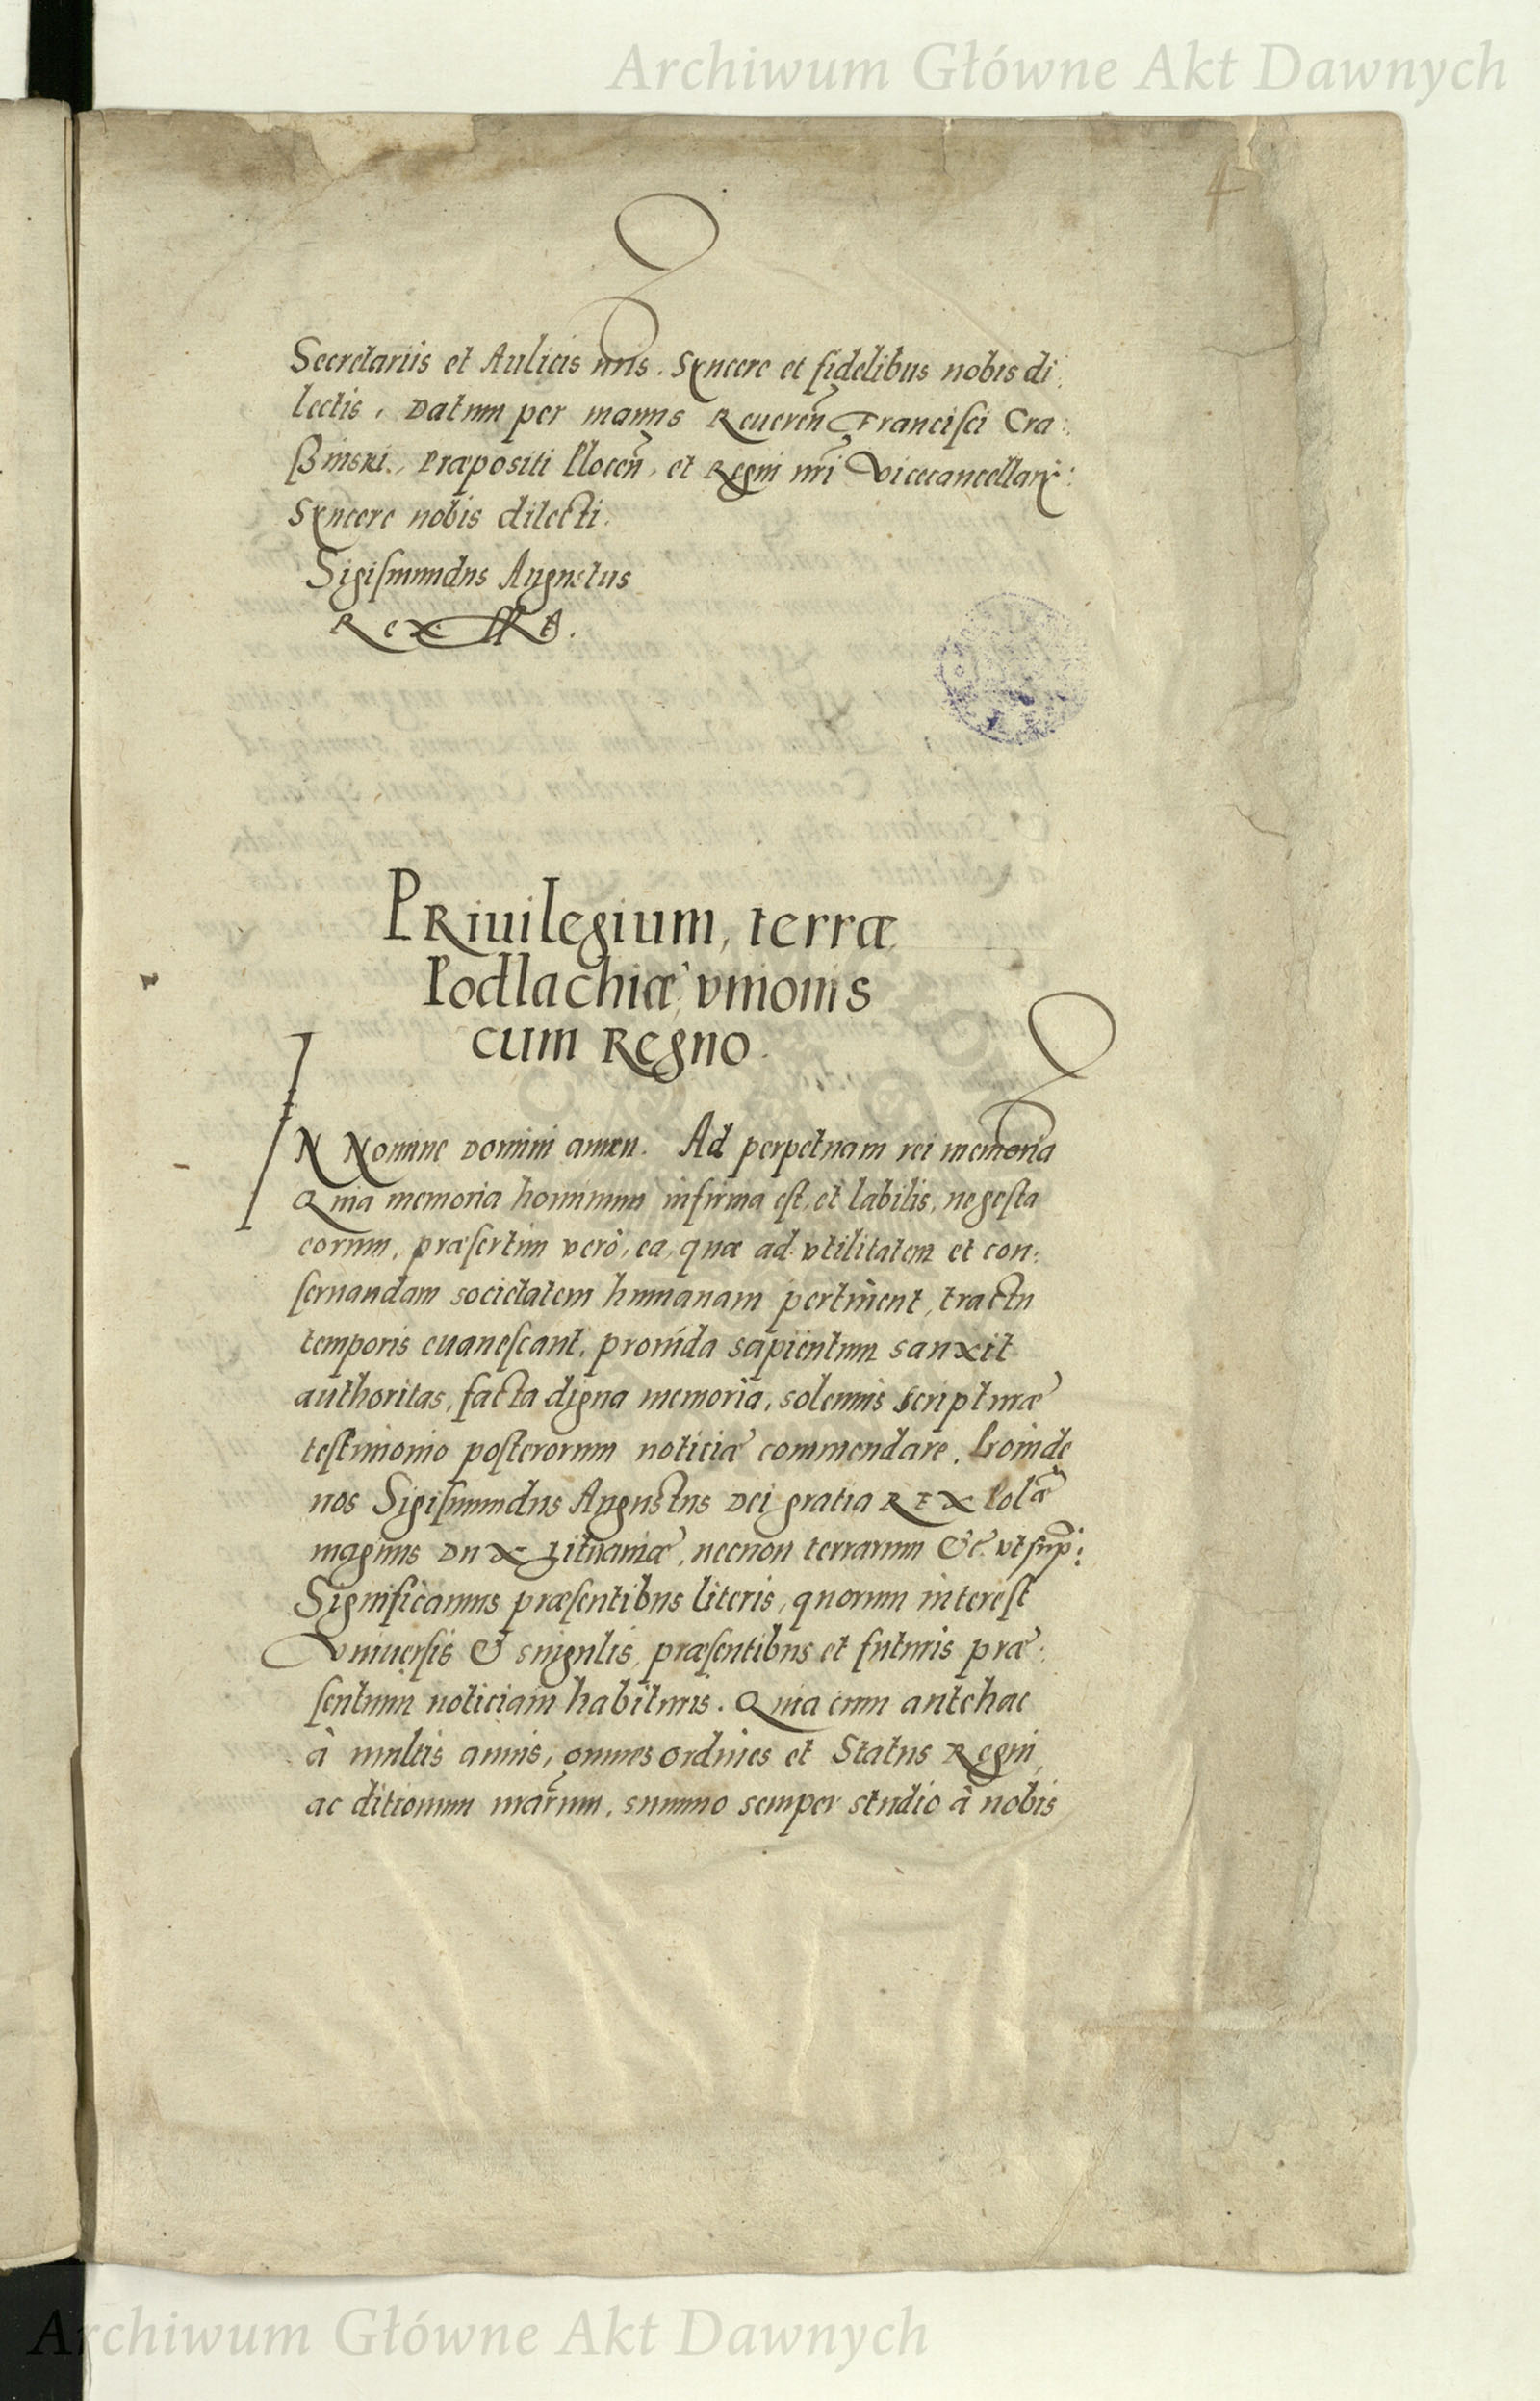 Archiwum Główne Akt Dawnych
4
Secretariis et Aulicis nris. Syncere et fidelibus nobis di:
lectis, Datum per manus Reueren Francisci Cra:
ßinski, Præpositi Plocen, et Regni nri Vicecancellarii:
Syncere nobis dilecti.
Sigismundus Augustus
Rex
PRiuilegium, terræ
Podlachiæ vnionis
cum Regno.
IN Nomine Domini amen. Ad perpetuam rei memoria
Quia memoria hominum infirma est, et labilis, ne gesta
eorum, præsertim verò, ea, quæ ad vtilitatem et con:
seruandam societatem humanam pertinent, tractu
temporis euanescant, prouida sapientum sanxit
authoritas, facta digna memoria, solemnis scripturæ
testimonio posterorum noticiæ commendare. Proinde
nos Sigismundus Augustus Dei gratia REX Polæ
magnus Dux Lituaniæ, necnon terrarum &c. vt sup:
Significamus præsentibus literis, quorum interest
Vniuersis & singulis, præsentibus et futuris præ:
sentium noticiam habituris. Quia cum antehac
à multis annis, omnes ordines et Status Regni,
ac ditionum nrarum, summo semper studio à nobis
Archiwum Główne Akt Dawnych